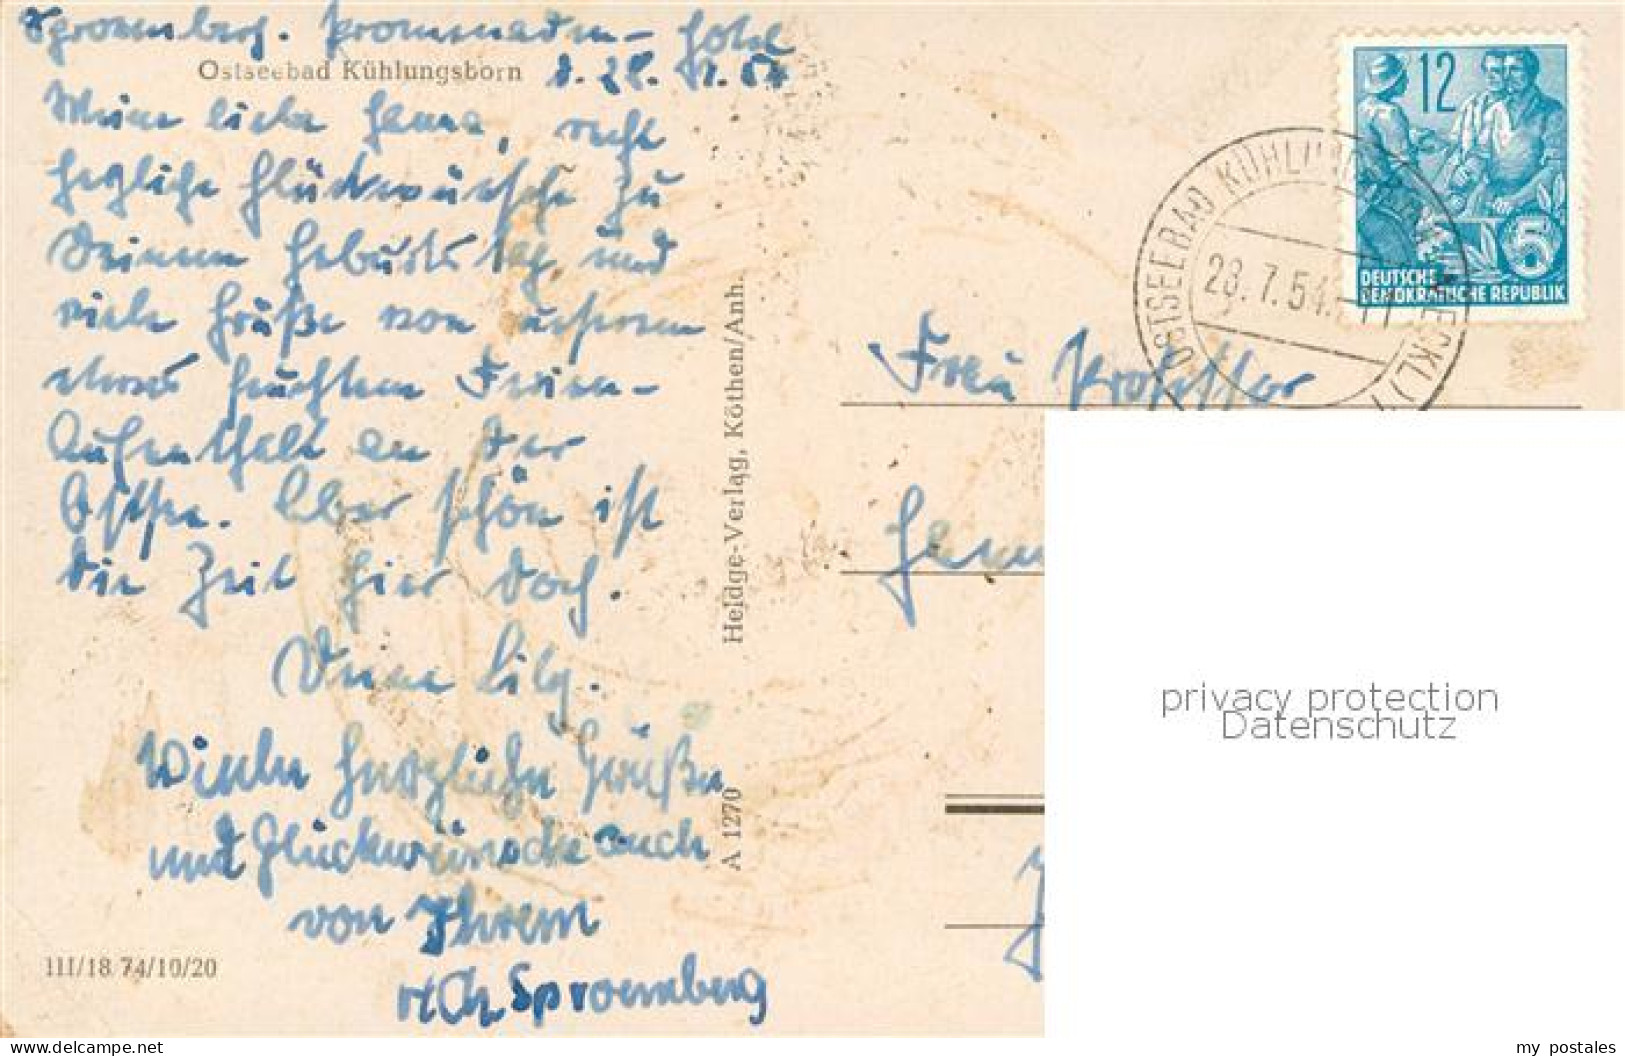 Sproemberg. Promenaden-Hotel
Ostseebad Kühlungsborn
d. 28. 7. 54
Meine liebe Hanna, recht
herzliche Glückwünsche zu
Deinem Geburtstag und
viele Grüße von unserem
etwas feuchten Ferien-
Aufenthalt an der
Ostsee. Aber schön ist
die Zeit hier doch.
Deine Lily.
Viele herzliche Grüße
und Glückwünsche auch
von Ihrem
Sproemberg
III/18 74/10/20
Heldge-Verlag, Köthen/Anh.
A 1270
OSTSEEBAD KÜHLUN
28.7.54
12
5
DEUTSCHE
DEMOKRATISCHE REPUBLIK
Frau Professor
privacy protection
Datenschutz
www.delcampe.net
my_postales